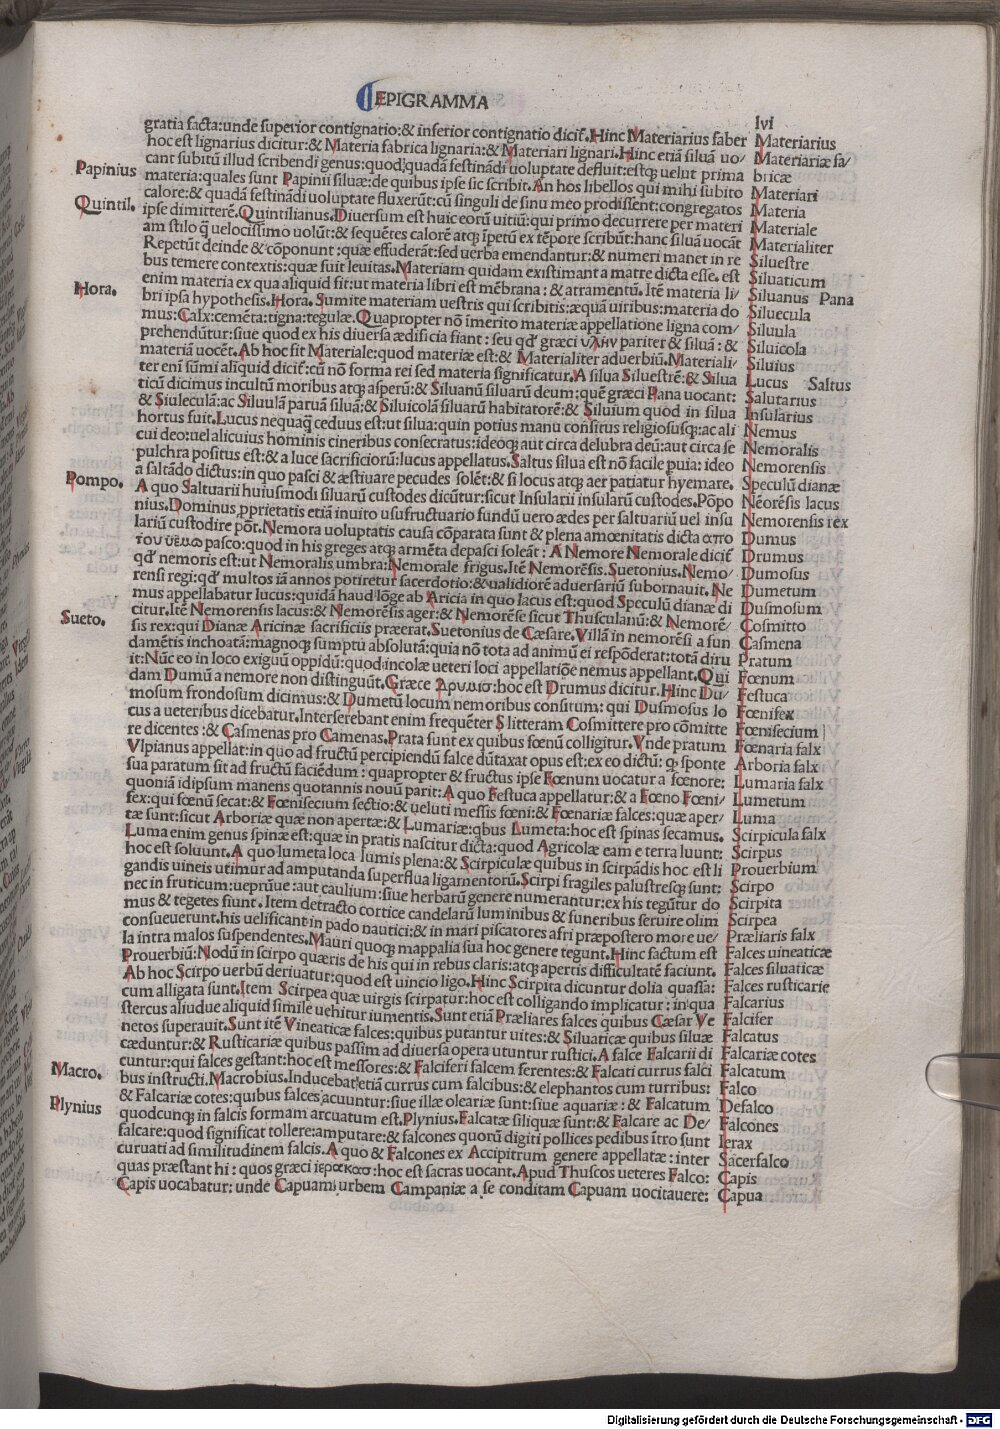 EPIGRAMMA
lvi
gratia facta:unde superior contignatio:& inferior contignatio dicit̃.Hinc Materiarius faber
hoc est lignarius dicitur:& Materia fabrica lignaria:& Materiari lignari.Hinc etiā siluā uo/
cant subitū illud scribendi genus:quod quadā festinādi uoluptate defluit:estq; uelut prima
materia:quales sunt Papinii siluæ:de quibus ipse sic scribit.An hos libellos qui mihi subito
calore:& quadā festinādi uoluptate fluxerūt:cū singuli de sinu meo prodissent:congregatos
ipse dimitterē.Quintilianus.Diuersum est huic eorū uitiū:qui primo decurrere per materi
am stilo q̄ uelocissimo uolūt:& sequētes calorē atq; īpetū ex tēpore scribūt:hanc siluā uocāt
Repetūt deinde & cōponunt:quæ effuderāt:sed uerba emendantur:& numeri manet in re
bus temere contextis:quæ fuit leuitas.Materiam quidam existimant a matre dicta esse.est
enim materia ex qua aliquid sit:ut materia libri est mēbrana:& atramentū.Itē materia li/
bri ipsa hypothesis.Hora.Sumite materiam uestris qui scribitis:æquā uiribus:materia do
mus:Calx:cemēta:tigna:tegulæ.Quapropter nō īmerito materiæ appellatione ligna com/
prehendūtur:siue quod ex his diuersa ædificia fiant:seu qd' græci υλην pariter & siluā:&
materiā uocēt.Ab hoc fit Materiale:quod materiæ est:& Materialiter aduerbiū.Materiali/
ter enī sūmi aliquid dicit̃:cū nō forma rei sed materia significatur.A silua Siluestrē:& Silua
ticū dicimus incultū moribus atq; asperū:& Siluanū siluarū deum:quē græci Pana uocant:
& Siuleculā:ac Siluulā paruā siluā:& Siluicolā siluarū habitatorē:& Siluium quod in silua
hortus fuit.Lucus nequaq̄ ceduus est:ut silua:quin potius manu consitus religiosusq;:ac ali
cui deo:uel alicuius hominis cineribus consecratus:ideoq; aut circa delubra deū:aut circa se
pulchra positus est:& a luce sacrificiorū:lucus appellatus.Saltus silua est nō facile puia:ideo
a saltādo dictus:in quo pasci & æstiuare pecudes solēt:& si locus atq; aer patiatur hyemare.
A quo Saltuarii huiusmodi siluarū custodes dicūtur:sicut Insularii insularū custodes.Pōpo
nius.Dominus pprietatis etiā inuito usufructuario fundū uero ædes per saltuariū uel insu
lariū custodire pōt.Nemora uoluptatis causa cōparata sunt & plena amœnitatis dicta απο
του υεμω pasco:quod in his greges atq; armēta depasci soleāt:A Nemore Nemorale dicit̃
qd' nemoris est:ut Nemoralis umbra:Nemorale frigus.Itē Nemorēsis.Suetonius.Nemo/
rensi regi:qd' multos iā annos potiretur sacerdotio:& ualidiorē aduersariū subornauit.Ne
mus appellabatur lucus:quidā haud lōge ab Aricia in quo lacus est:quod Speculū dianæ di
citur.Itē Nemorensis lacus:& Nemorēsis ager:& Nemorēse sicut Thusculanū:& Nemorē/
sis rex:qui Dianæ Aricinæ sacrificiis præerat.Suetonius de Cæsare.Villā in nemorēsi a fun
damētis inchoatā:magnoq; sumptu absolutā:quia nō tota ad animū ei respōderat:totā diru
it:Nūc eo in loco exiguū oppidū:quod incolæ ueteri loci appellatiōe nemus appellant.Qui
dam Dumū a nemore non distinguūt.Græce Δρυμισ:hoc est Drumus dicitur.Hinc Du/
mosum frondosum dicimus:& Dumetū locum nemoribus consitum:qui Dusmosus lo
cus a ueteribus dicebatur.Interserebant enim frequēter S litteram Cosmittere pro cōmitte
re dicentes:& Casmenas pro Camenas.Prata sunt ex quibus fœnū colligitur.Vnde pratum
Vlpianus appellat:in quo ad fructū percipiendū falce dūtaxat opus est:ex eo dictū:q; sponte
sua paratum sit ad fructū faciēdum:quapropter & fructus ipse Fœnum uocatur a fœnore:
quoniā idipsum manens quotannis nouū parit:A quo Festuca appellatur:& a Fœno Fœni/
sex:qui fœnū secat:& Fœnisecium sectio:& ueluti messis fœni:& Fœnariæ falces:quæ aper/
tæ sunt:sicut Arboriæ quæ non apertæ:& Lumariæ:qbus Lumeta:hoc est spinas secamus.
Luma enim genus spinæ est:quæ in pratis nascitur dicta:quod Agricolæ eam e terra luunt:
hoc est soluunt.A quo lumeta loca lumis plena:& Scirpiculæ quibus in scirpādis hoc est li
gandis uineis utimur ad amputanda superflua ligamentorū.Scirpi fragiles palustresq; sunt:
nec in fruticum:ueprūue:aut caulium:siue herbarū genere numerantur:ex his tegūtur do
mus & tegetes fiunt.Item detracto cortice candelarū luminibus & funeribus seruire olim
consueuerunt.his uelificant in pado nautici:& in mari piscatores afri præpostero more ue/
la intra malos suspendentes.Mauri quoq; mappalia sua hoc genere tegunt.Hinc factum est
Prouerbiū:Nodū in scirpo quæris de his qui in rebus claris:atq; apertis difficultatē faciunt.
Ab hoc Scirpo uerbū deriuatur:quod est uincio ligo.Hinc Scirpita dicuntur dolia quassa:
cum alligata sunt.Item Scirpea quæ uirgis scirpatur:hoc est colligando implicatur:in qua
stercus aliudue aliquid simile uehitur iumentis.Sunt etiā Præliares falces quibus Cæsar Ve
netos superauit.Sunt itē Vineaticæ falces:quibus putantur uites:& Siluaticæ quibus siluæ
cæduntur:& Rusticariæ quibus passim ad diuersa opera utuntur rustici.A falce Falcarii di
cuntur:qui falces gestant:hoc est messores:& Falciferi falcem ferentes:& Falcati currus falci
bus instructi.Macrobius.Inducebat etiā currus cum falcibus:& elephantos cum turribus:
& Falcariæ cotes:quibus falces acuuntur:siue illæ oleariæ sunt:siue aquariæ:& Falcatum
quodcunq; in falcis formam arcuatum est.Plynius.Falcatæ siliquæ sunt:& Falcare ac De/
falcare:quod significat tollere:amputare:& falcones quorū digiti pollices pedibus ītro sunt
curuati ad similitudinem falcis.A quo & Falcones ex Accipitrum genere appellatæ:inter
quas præstant hi:quos græci ιερακασ:hoc est sacras uocant.Apud Thuscos ueteres Falco:
Capis uocabatur:unde Capuam urbem Campaniæ a se conditam Capuam uocitauere:
Papinius
Quintil.
Hora.
Pompo.
Sueto.
Macro.
Plynius
Materiarius
Materiariæ fa/
bricæ
Materiari
Materia
Materiale
Materialiter
Siluestre
Siluaticum
Siluanus Pana
Siluecula
Siluula
Siluicola
Siluius
Lucus Saltus
Salutarius
Insularius
Nemus
Nemoralis
Nemorensis
Speculū dianæ
Nēorēsis lacus
Nemorensis rex
Dumus
Drumus
Dumosus
Dumetum
Dusmosum
Cosmitto
Casmena
Pratum
Fœnum
Festuca
Fœnifex
Fœnisecium
Fœnaria falx
Arboria falx
Lumaria falx
Lumetum
Luma
Scirpicula falx
Scirpus
Prouerbium
Scirpo
Scirpita
Scirpea
Præliaris falx
Falces uineaticæ
Falces siluaticæ
Falces rusticarie
Falcarius
Falcifer
Falcatus
Falcariæ cotes
Falcatum
Falco
Defalco
Falcones
Ierax
Sacerfalco
Capis
Capua
Digitalisierung gefördert durch die Deutsche Forschungsgemeinschaft - DFG